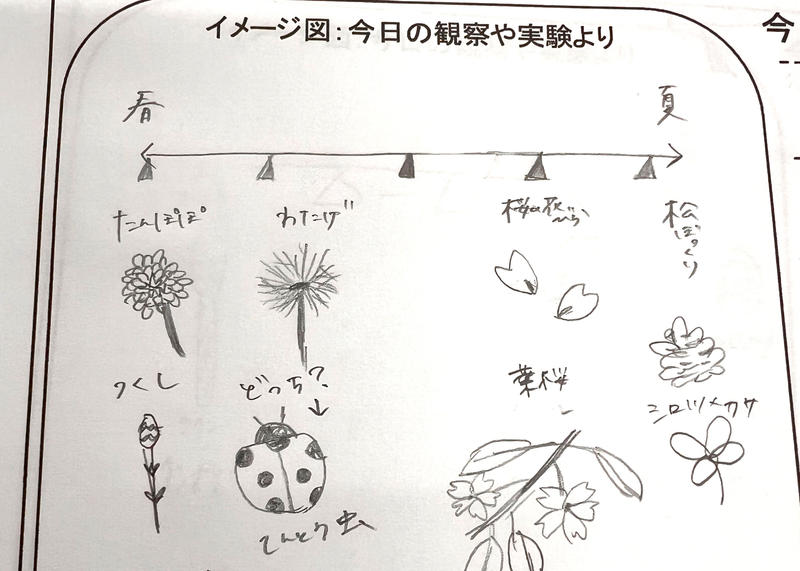 イメージ図：今日の観察や実験より
今
春
夏
たんぽぽ
わたげ
桜の花びら
松ぼっくり
つくし
どっち？
葉桜
シロツメクサ
てんとう虫